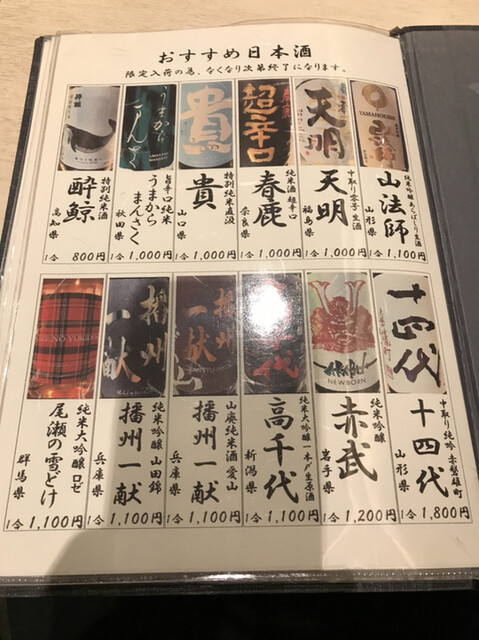 おすすめ日本酒
限定入荷の為、なくなり次第終了になります。
YAMAHOUSHI
山法師
純米吟醸 あらばしり生酒
山形県
1合 1,100円
天明
天明
中取り零号 生酒
福島県
1合 1,000円
超辛口
春鹿
純米酒 超辛口
奈良県
1合 1,000円
貴
貴
特別純米直汲
山口県
1合 1,000円
うまから
まんさく
うまから
まんさく
旨辛口純米
秋田県
1合 1,000円
酔鯨
酔鯨
特別純米酒
高知県
1合 800円
十四代
十四代
中取り 純吟 赤磐雄町
山形県
1合 1,800円
NEWBORN
赤武
純米吟醸
岩手県
1合 1,200円
高千代
純米大吟醸一本〆生原酒
新潟県
1合 1,100円
播州一献
播州一献
山廃純米酒 愛山
兵庫県
1合 1,100円
播州一献
播州一献
純米吟醸 山田錦
兵庫県
1合 1,100円
尾瀬の雪どけ
純米大吟醸 ロゼ
群馬県
1合 1,100円